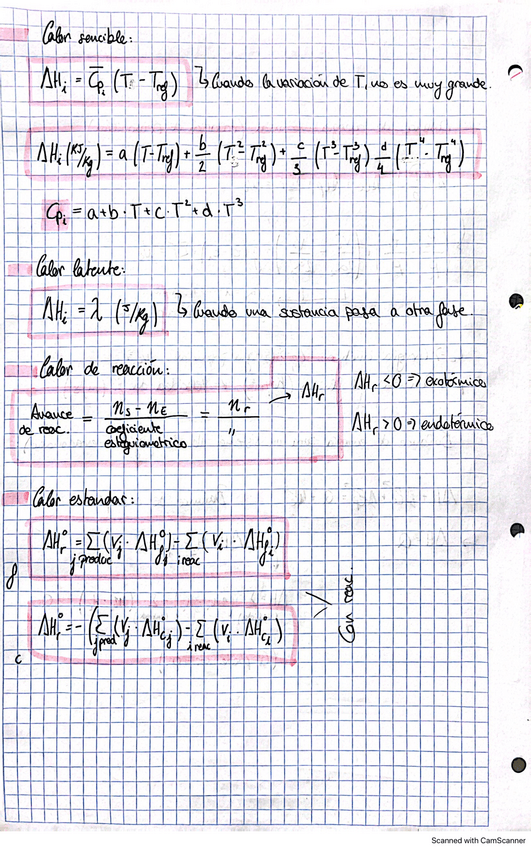 Calor sensible:
ΔHᵢ = C̄pᵢ (T - Tref) ↳ Cuando la variación de T, no es muy grande.
ΔHᵢ (KJ/Kg) = a (T-Tref) + b/2 (T² - Tref²) + c/3 (T³-Tref³) d/4 (T⁴ - Tref⁴)
Cpᵢ = a+b·T+c·T²+d·T³
Calor latente:
ΔHᵢ = λ (J/Kg) ↳ Cuando una sustancia pasa a otra fase
Calor de reacción:
Avance de reac. = nS - nE / coeficiente estequiometrico = nr / " → ΔHr
ΔHr <0 => exotérmico
ΔHr >0 => endotérmico
Calor estandar:
f ΔHr° = Σ j produc (Vj · ΔH°fj) - Σ i reac (Vi · ΔH°fi)
Con reac.
c ΔHr° = - (Σ j prod (Vj · ΔH°cj) - Σ i reac (Vi · ΔH°ci)
Scanned with CamScanner